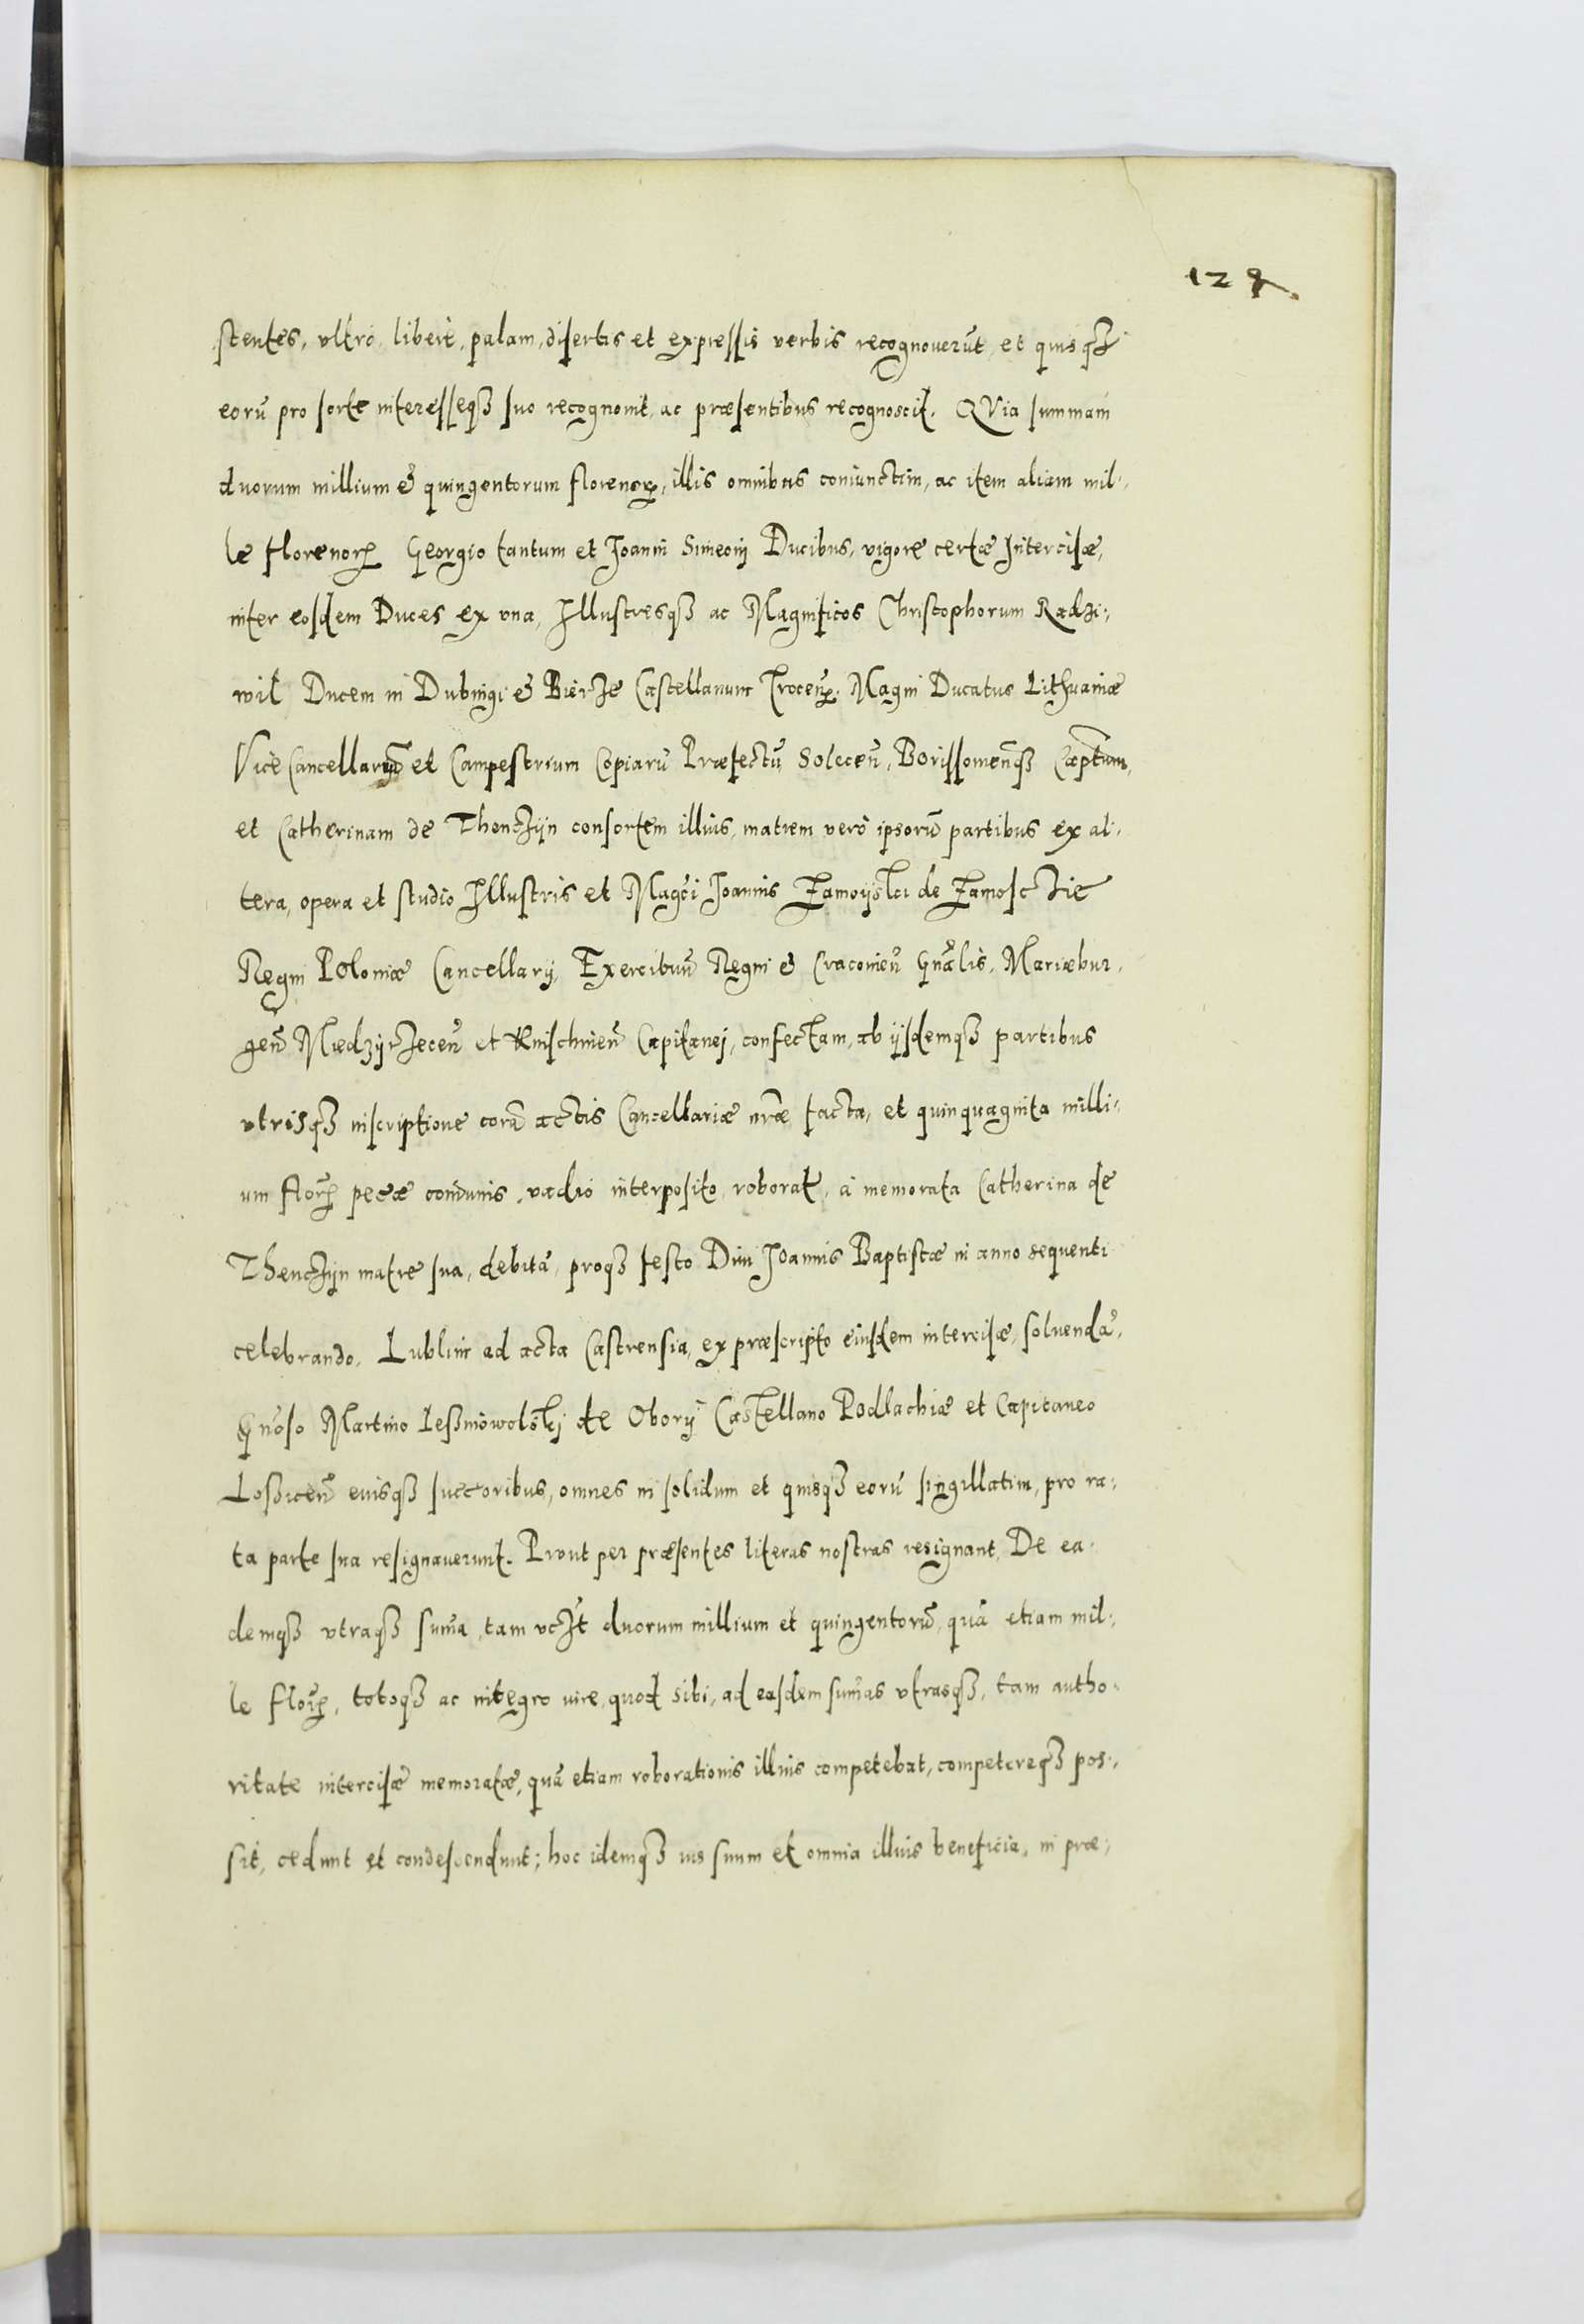 128.
stentes, vltrò, liberè, palam, disertis et expressis verbis recognouerũt, et quisqз
eorũ pro sorte interesseqз suo recognouit, ac præsentibus recognoscit. QVia summam
duorum millium & quingentorum florenoꝝ, illis omnibus coniunctim, ac item aliam mil-
le florenoꝝ Georgio tantum et Joanni Simeoni Ducibus, vigore certæ Intercisæ,
inter eosdem Duces ex vna, Illustresqз ac Magnificos Christophorum Radzi-
wil Ducem in Dubingi & Bierze Castellanum Trocen̄, Magni Ducatus Lithuaniæ
Vice Cancellariũ et Campestrium Copiarũ Præfectũ, Solecen̄, Borissomen̄qз Capt̄um,
et Catherinam de Thenczijn consortem illius, matrem verò ipsorũ partibus ex al-
tera, opera et studio Illustris et Mag͠ci Joannis Zamoijski de Zamosczie
Regni Poloniæ Cancellarij, Exercituũ Regni & Cracouien̄ Gn̄alis, Mariæbur-
gen̄ Miedzijrzecen̄ et Knischinen̄ Capitanej, confectam, ab ijsdemqз partibus
vtrisqз inscriptione corã actis Cancellariæ nr̄æ facta, et quinquaginta milli-
um flor̄ꝝ pec̄æ com̄unis, vadio interposito, roborat̄, à memorata Catherina de
Thenczijn matre sua, debitã, proqз festo Diui Joannis Baptistæ in anno sequenti
celebrando, Lublini ad acta Castrensia, ex præscripto eiusdem intercisæ, soluendã,
Gn̄oso Martino Lesзniowolskj de Oborij Castellano Podlachiæ et Capitaneo
Losзicen̄ eiusqз succ̄oribus, omnes in solidum et quisqз eorũ singillatim, pro ra-
ta parte sua resignauerunt. Prout per præsentes literas nostras resignant, De ea-
demqз vtraqз sum̄a, tam vcz̄t duorum millium et quingentorũ, quã etiam mil-
le flor̄ꝝ, totoqз ac integro iure, quod sibi, ad easdem sum̄as vtrasqз, tam autho-
ritate intercisæ memoratæ, quã etiam roborationis illius competebat, competereqз pos-
sit, cedunt et condescendunt; hoc idemqз ius suum et omnia illius beneficia, in præ-